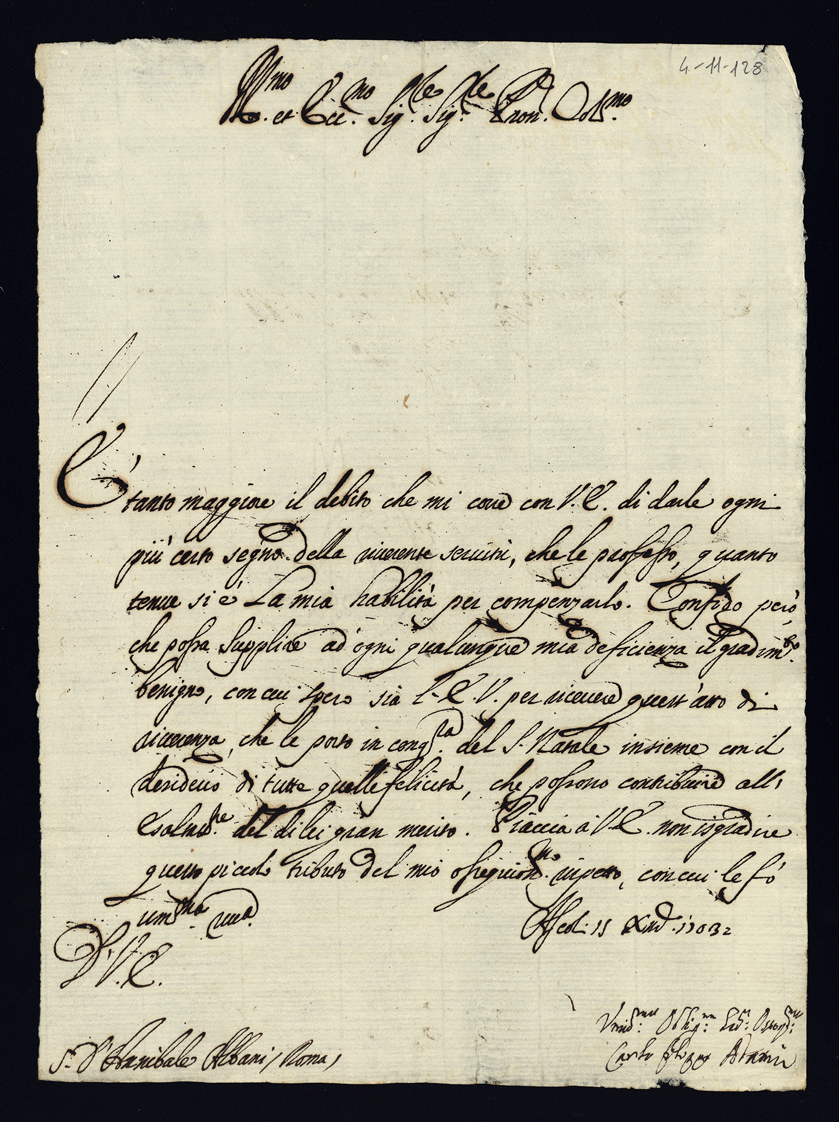 4-11-128
Ill.mo et Ecc.mo Sig.re Sig.re Pron. Col.mo
È tanto maggiore il debito che mi corre con V.E. di darle ogni
più certo segno della riverente servitù, che le professo, quanto
tenue si è La mia habilità per compenzarlo. Confido però,
che possa Supplire ad'ogni qualunque mia deficienza il gradim.to
benigno, con cui spero sia l'E.V. per ricevere quest'atto di
riverenza, che le porto in cong.ra del S. Natale insieme con il
desiderio di tutte quelle felicità, che possono contribuire all'
Esaltat.ne del di lei gran merito. Piaccia à V.E. non isgradire
questo piccolo tributo del mio ossequiosis.mo rispetto, con cui le fò
um.ma riv.a
Ascoli 15 Xmb. 1703
D. V. E.
Obblig.mo
Carlo
S.r D. Hanibale Albani / Roma /